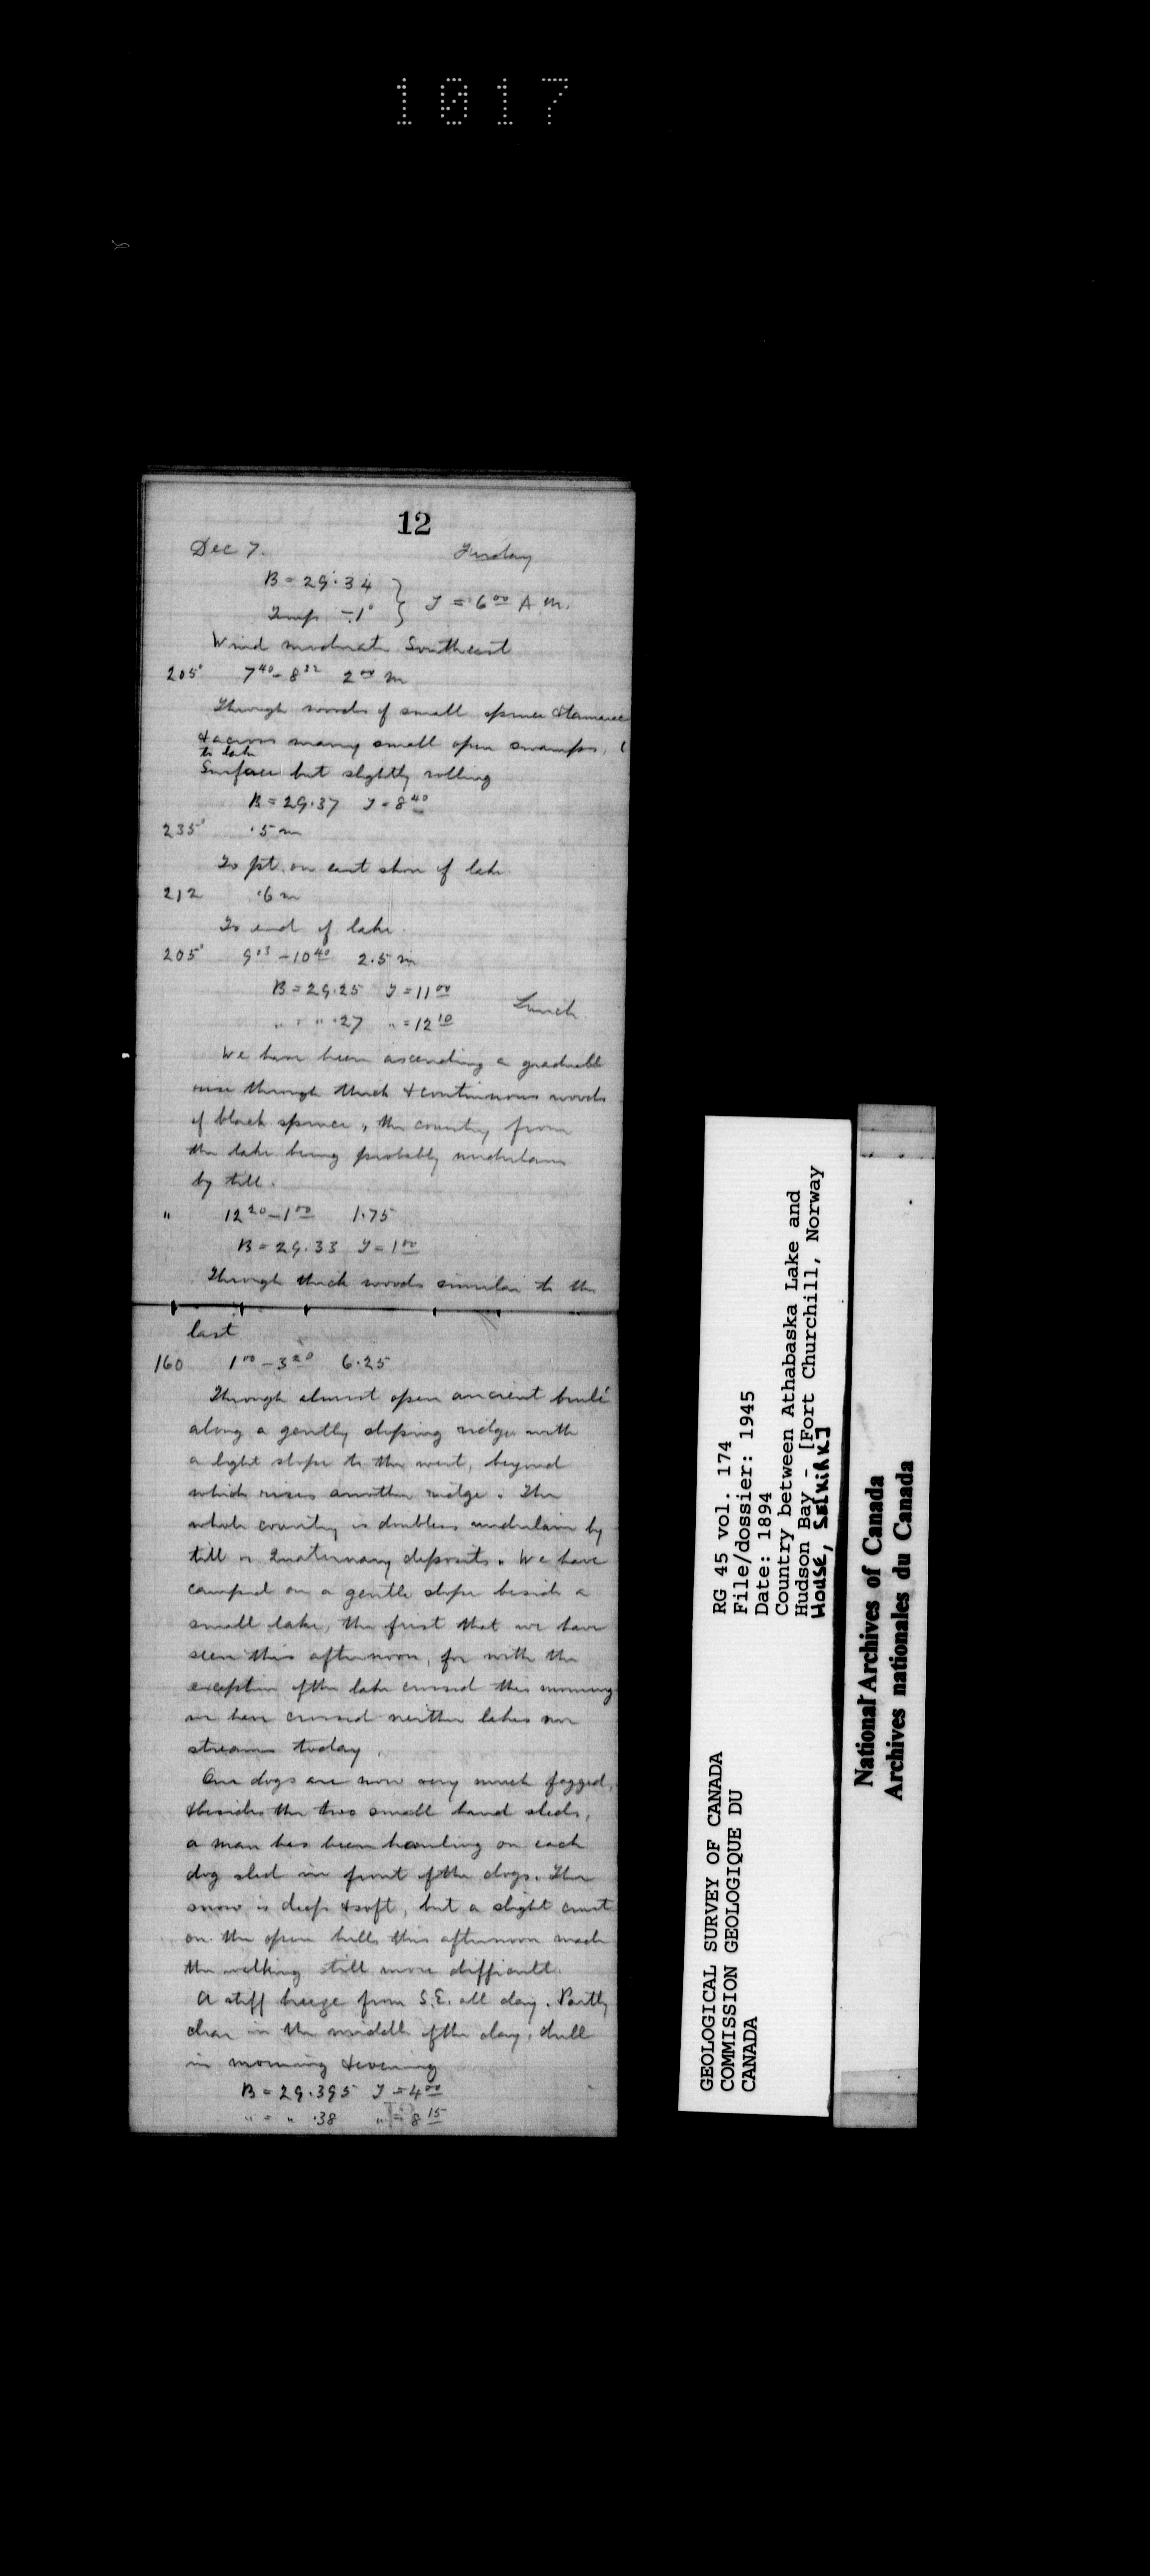 1017
12
Dec 7. Friday
B = 29.34
Temp. -1° } T = 6⁰⁰ A.M.
Wind moderate Southeast
205° 7⁴⁰ - 8²² 2⁰⁰ m
Through woods of small spruce & tamarac
& across many small open swamps,
to lake
Surface but slightly rolling
B = 29.37 T = 8⁴⁰
235° .5 m
To pt. on east shore of lake
212 .6 m
To end of lake.
205° 9⁰³ - 10⁴⁰ 2.5 m
B = 29.25 T = 11⁰⁰
" = " .27 " = 12¹⁰ Lunch
We have been ascending a gradual
rise through thick & continuous woods
of black spruce, the country from
the lake being probably underlain
by till.
" 12²⁰ - 1⁰⁰ 1.75
B = 29.33 T = 1⁰⁰
Through thick woods similar to the
last
160 1⁰⁰ - 3²⁰ 6.25
Through almost open ancient brulé
along a gently sloping ridge with
a light slope to the west, beyond
which rises another ridge. The
whole country is doubtless underlain by
till or Quaternary deposits. We have
camped on a gentle slope beside a
small lake, the first that we have
seen this afternoon, for with the
exception of the lake crossed this morning
we have crossed neither lakes nor
streams today.
Our dogs are now very much fagged,
& besides the two small hand sleds,
a man has been hauling on each
dog sled in front of the dogs. The
snow is deep & soft, but a slight crust
on the open hills this afternoon made
the walking still more difficult.
A stiff breeze from S.E. all day. Partly
clear in the middle of the day, dull
in morning & evening
B = 29.395 T = 4⁰⁰
" = " .38 " = 8¹⁵
RG 45 vol. 174
File/dossier: 1945
Date: 1894
Country between Athabaska Lake and
Hudson Bay - [Fort Churchill, Norway
House, Selkirk]
GEOLOGICAL SURVEY OF CANADA
COMMISSION GEOLOGIQUE DU
CANADA
National Archives of Canada
Archives nationales du Canada